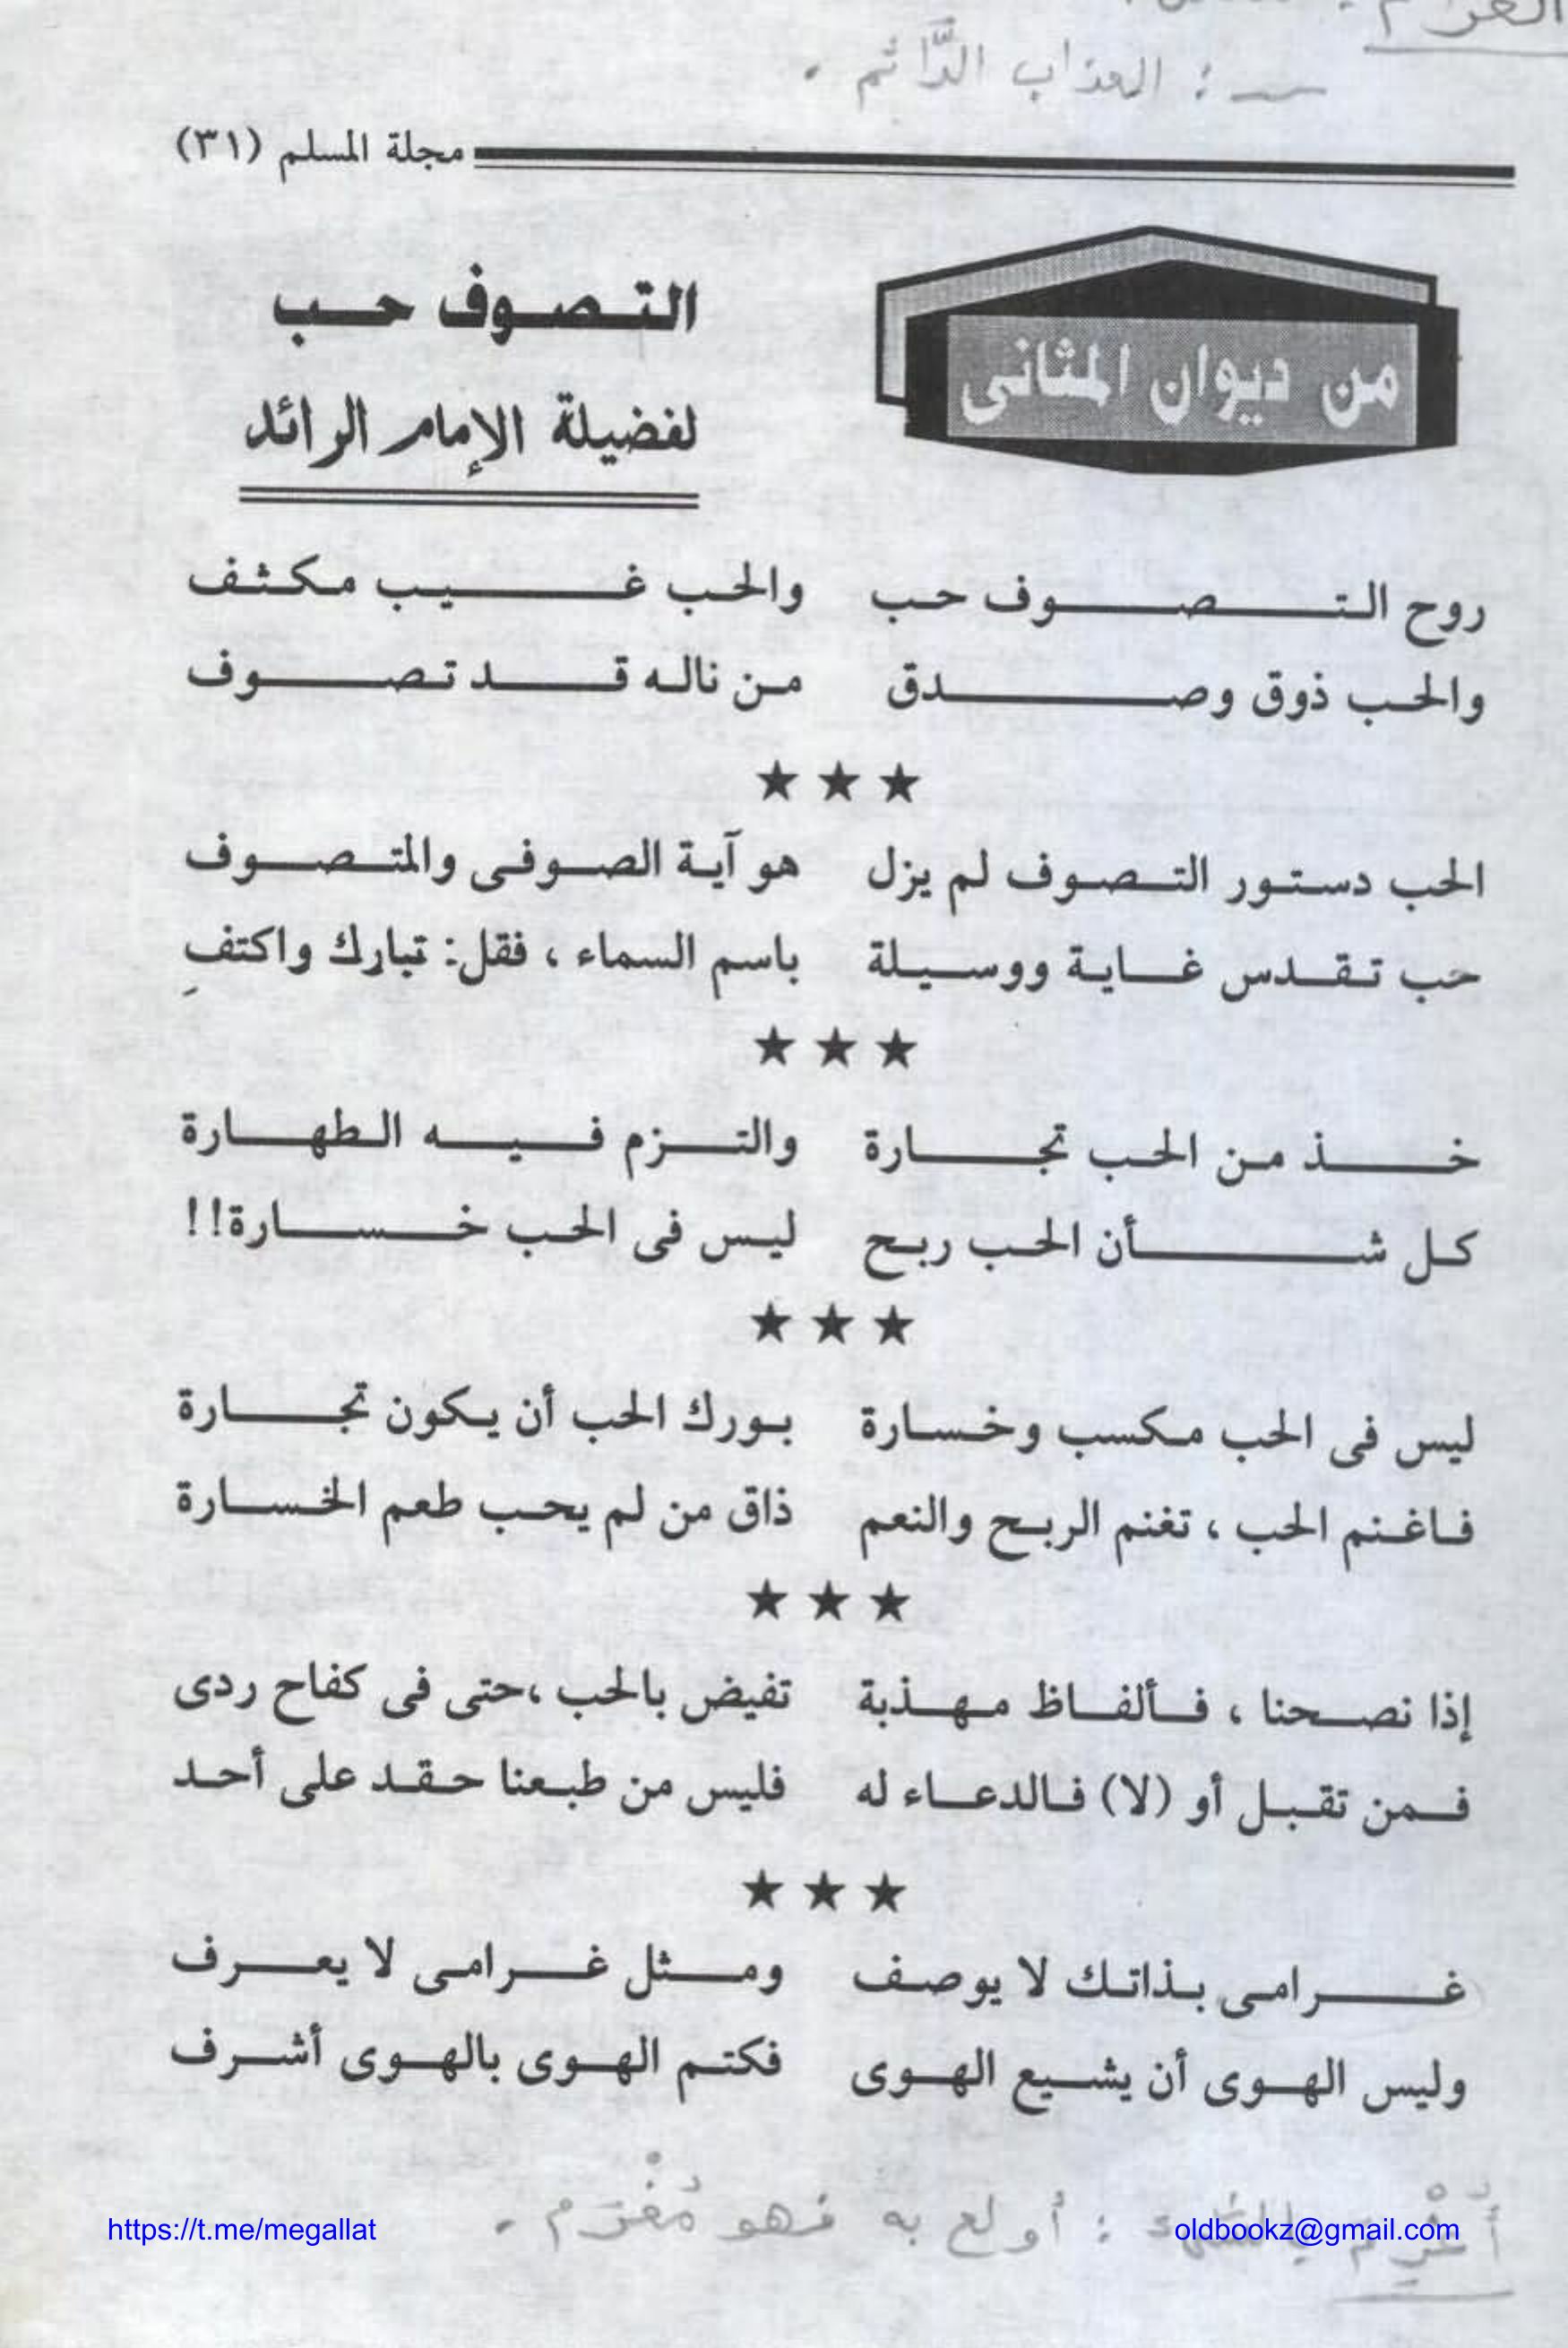 الغرام
ـــ : العذاب الدَّائم .
مجلة المسلم (٣١)
من ديوان المثانى
التصوف حب
لفضيلة الإمام الرائد
روح التصوف حب والحب غيب مكثف
والحب ذوق وصدق من ناله قد تصوف
★ ★ ★
الحب دستور التصوف لم يزل هو آية الصوفى والمتصوف
حب تقدس غاية ووسيلة باسم السماء ، فقل: تبارك واكتفِ
★ ★ ★
خذ من الحب تجارة والتزم فيه الطهارة
كل شأن الحب ربح ليس فى الحب خسارة!!
★ ★ ★
ليس فى الحب مكسب وخسارة بورك الحب أن يكون تجارة
فاغنم الحب ، تغنم الربح والنعم ذاق من لم يحب طعم الخسارة
★ ★ ★
إذا نصحنا ، فألفاظ مهذبة تفيض بالحب ،حتى فى كفاح ردى
فمن تقبل أو (لا) فالدعاء له فليس من طبعنا حقد على أحد
★ ★ ★
غرامى بذاتك لا يوصف ومثل غرامى لا يعرف
وليس الهوى أن يشيع الهوى فكتم الهوى بالهوى أشرف
أُغْرِم بالشيء : أولع به فهو مُغْرَم .
https://t.me/megallat oldbookz@gmail.com